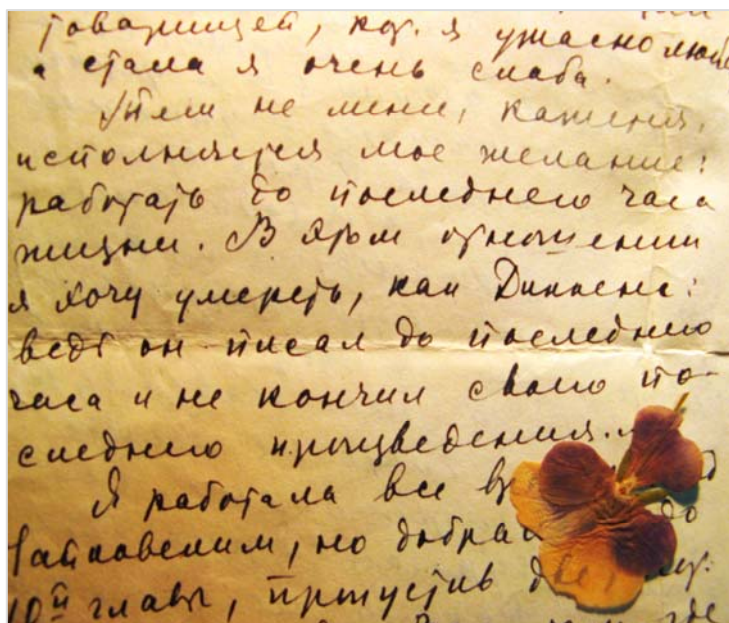 товарищей, кот. я ужасно
а стала я очень слаба.
Тем не мение, кажется,
исполняется мое желание:
работать до последнего часа
жизни. В этом отношении
я хочу умереть, как Диккенс:
ведь он писал до последнего
часа и не кончил своего по-
следнего произведения.
Я работала все
но до
10й главы, пропустив
где